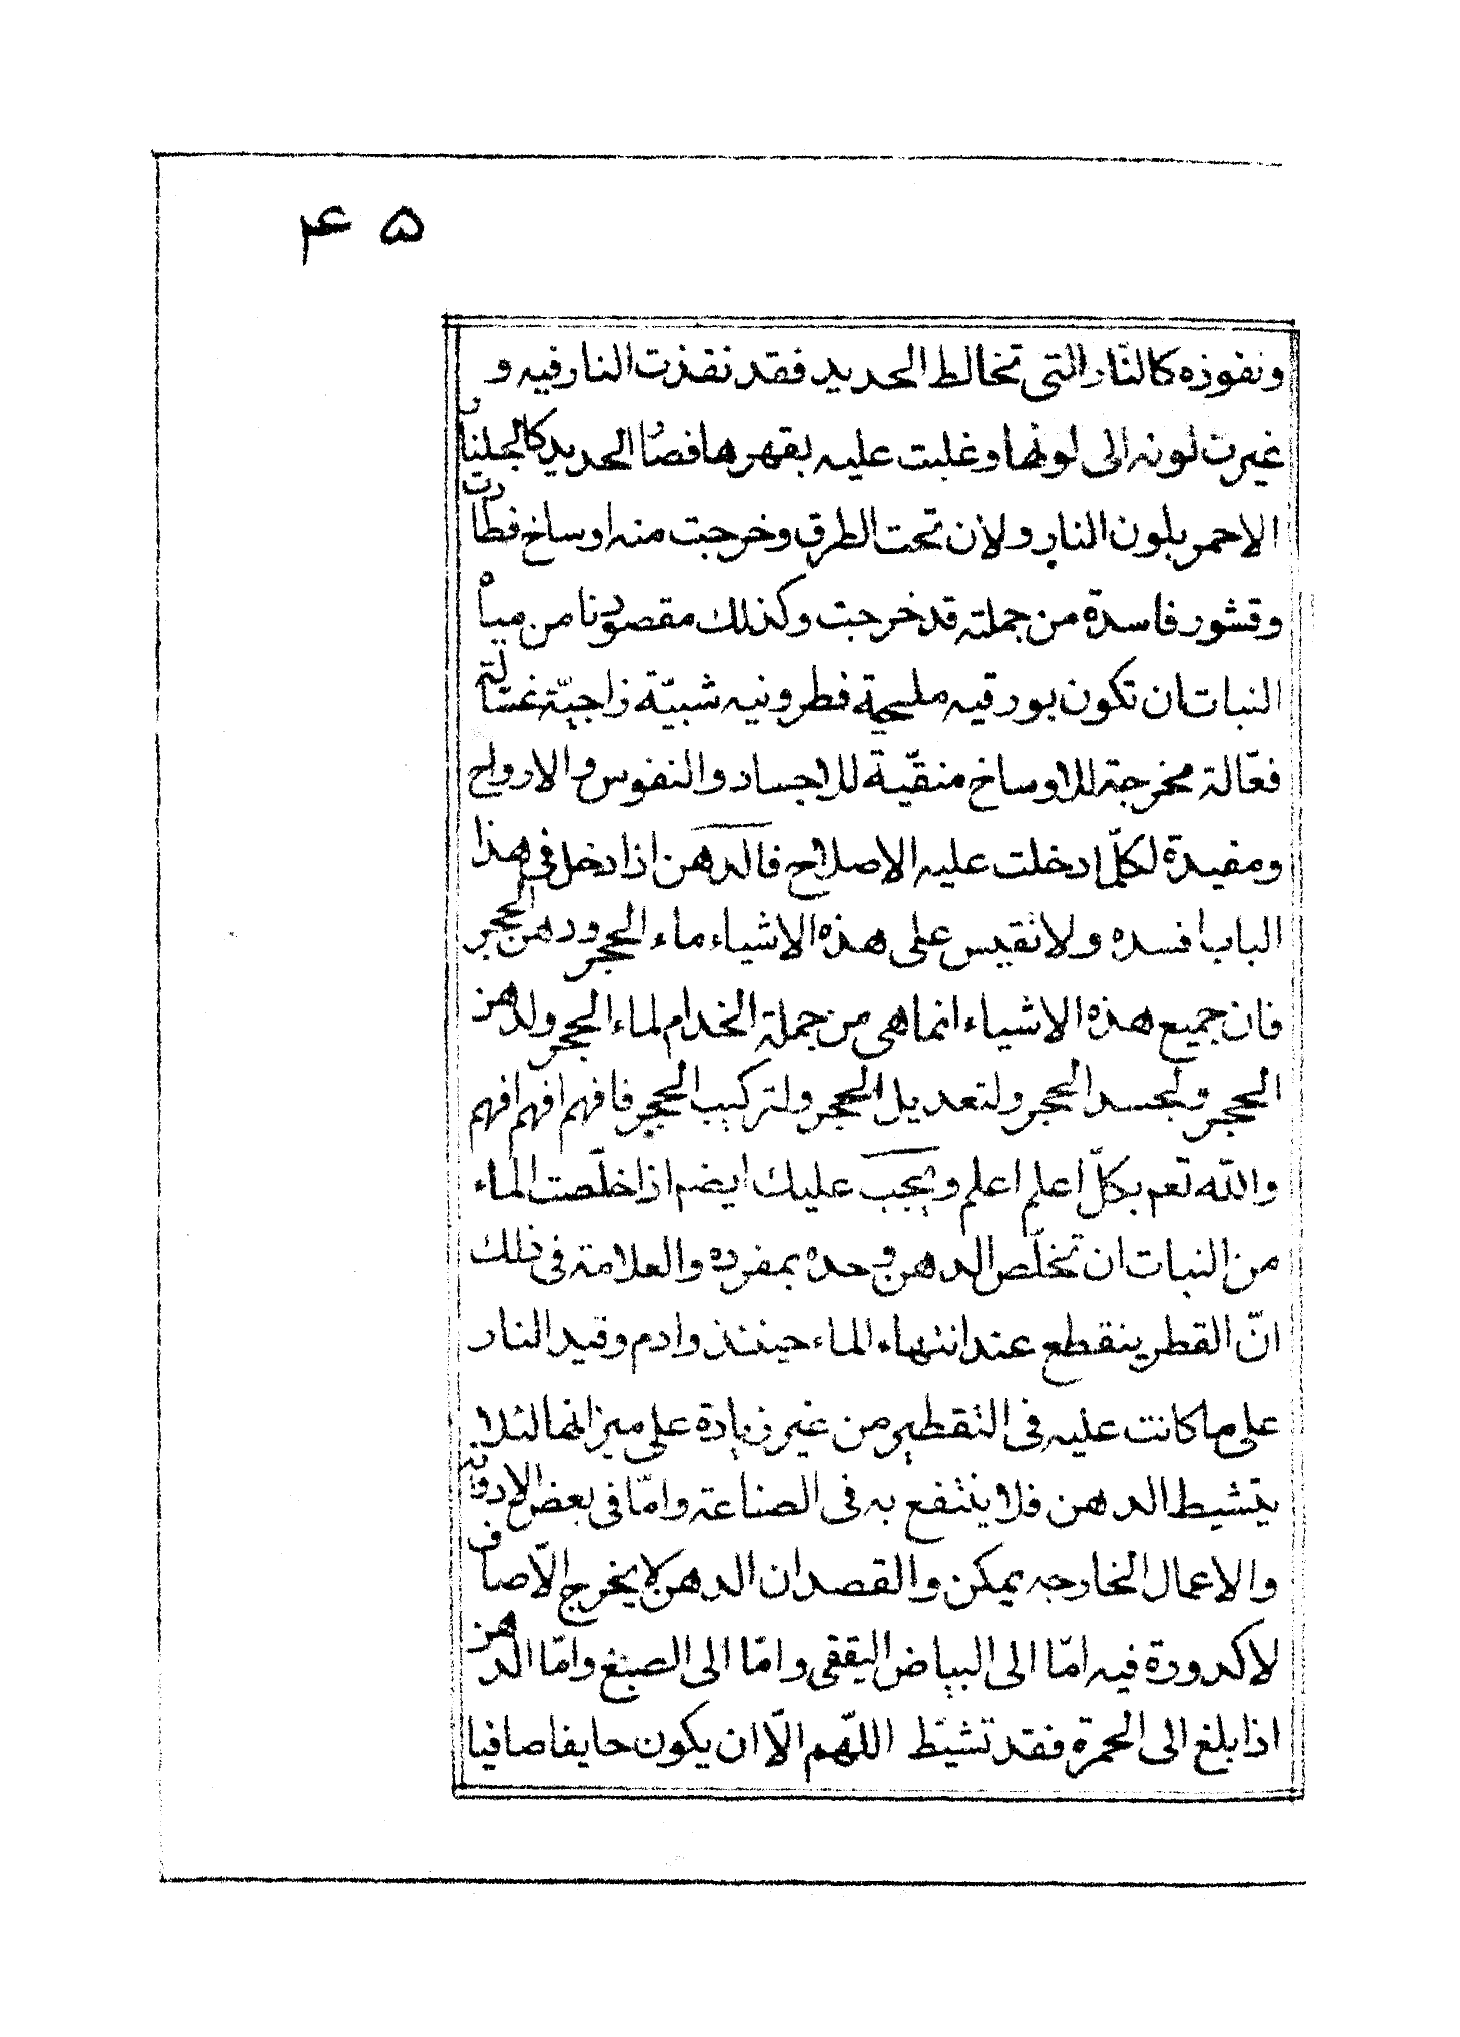 ۴۵
ونفوذه كالنّار التى تخالط الحديد فقد نفذت النار فيه و
غيرت لونه الى لونها وغلبت عليه بقهرها فصار الحديد كالجلنار
الاحمر بلون النار ولان تحت الطرق وخرجت منه اوساخ فطارت
وقشور فاسدة من جملته قد خرجت وكذلك مقصودنا من مياه
النبات ان تكون بورقيه مليحية فطرونيه شبيّة زاجيّة غسّالة
فعّالة مخرجة للاوساخ منقّية للاجساد والنفوس والارواح
ومفيدة لكلّما دخلت عليه الاصلاح فالدهن اذا دخل فى هذا
الباب افسده ولا نقيس على هذه الاشياء ماء الحجر ودهن الحجر
فان جميع هذه الاشياء انما هى من جملة الخدام لماء الحجر ولدهن
الحجر ولجسد الحجر ولتعديل الحجر ولتركيب الحجر فافهم افهم افهم
والله تعم بكلّ اعلم اعلم ويجب عليك ايضم اذا خلّصت الماء
من النبات ان تخلّص الدهن وحده بمفرده والعلامة فى ذلك
انّ القطر ينقطع عند انتهاء الماء حينئذ وادم وقيد النار
على ما كانت عليه فى التقطير من غير زيادة على ميزانها لئلا
يتشيط الدهن فلا ينتفع به فى الصناعة وامّا فى بعض الادوية
والاعمال الخارجه يمكن والقصد ان الدهن لا يخرج الّا صاف
لا كدورة فيه امّا الى البياض اليققى وامّا الى الصبغ وامّا الدهن
اذا بلغ الى الحمرة فقد تشيّط اللّهم الّا ان يكون حايفا صافيا